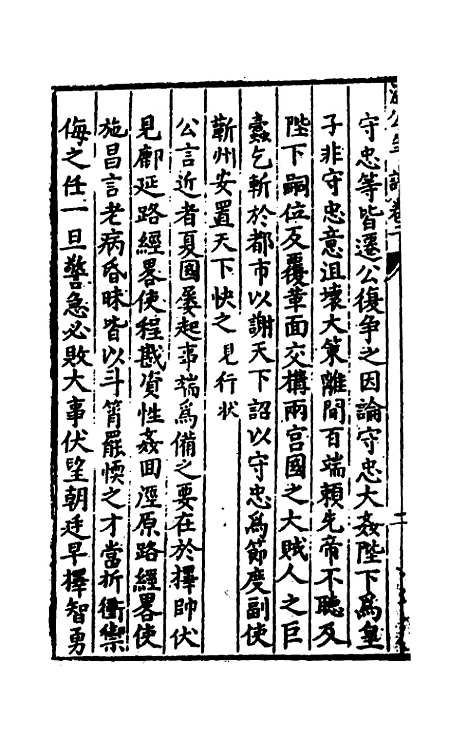 守忠等皆遷公復争之因論守忠大姦陛下爲皇
子非守忠意沮壞大策離間百端賴先帝不聽及
陛下嗣位反覆革面交構兩宫國之大賊人之巨
蠹乞斬於都市以謝天下詔以守忠爲節度副使
蘄州安置天下快之見行状
公言近者夏國屡起事端爲備之要在於擇帥伏
見鄜延路經畧使程戡資性姦回涇原路經畧使
施昌言老病昏昧皆以斗筲罷愞之才當折衝禦
侮之任一旦警急必敗大事伏望朝廷早擇智勇